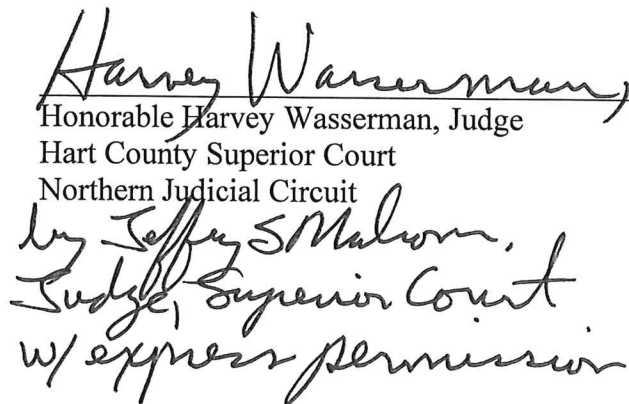 Harvey Wasserman,
Honorable Harvey Wasserman, Judge
Hart County Superior Court
Northern Judicial Circuit
by Jeffrey S Malcom,
Judge, Superior Court
w/ express permission